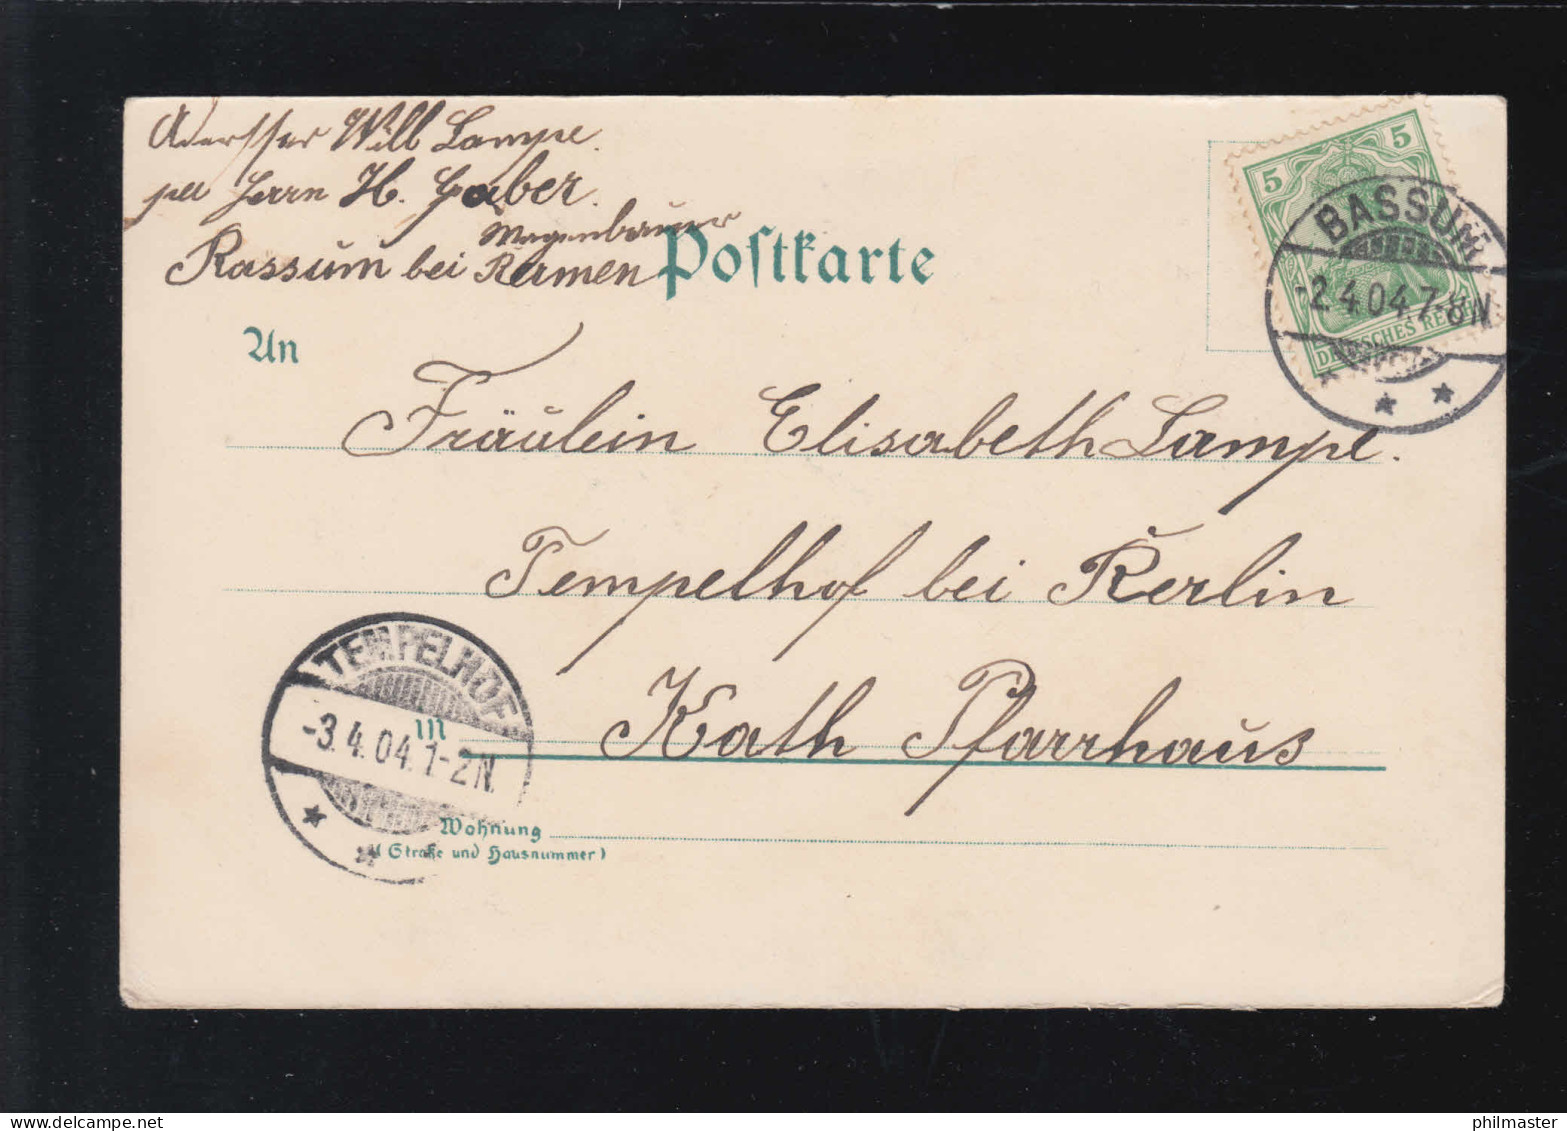 Will Lampe.
per Herrn H. Gaber.
Wagenbauer
Bassum bei Bremen
Postkarte
5 5
DEUTSCHES REICH
BASSUM
-2.4.04.7-8N
An
Fräulein Elisabeth Lampe.
Tempelhof bei Berlin
TEMPELHOF
-3.4.04.1-2N.
in
Kath Pfarrhaus
Wohnung
(Straße und Hausnummer)
philmaster